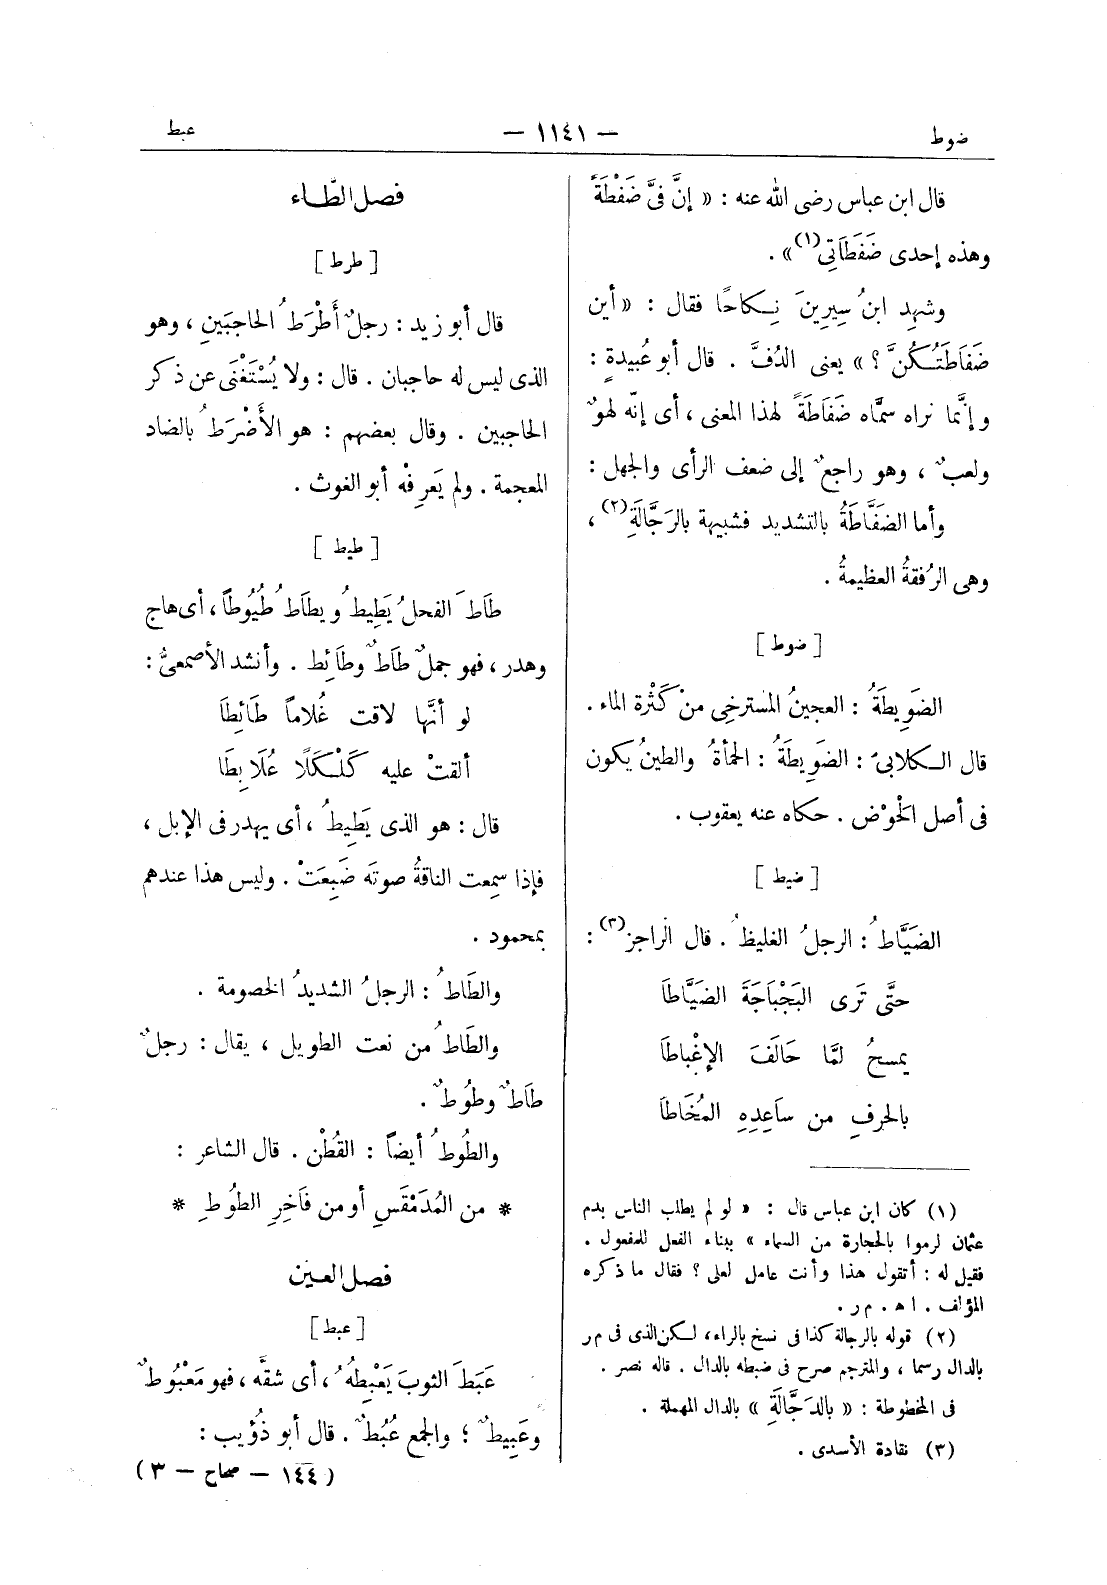 ضوط
— ١١٤١ —
عبط
قال ابن عباس رضى الله عنه : « إنَّ فىَّ ضَفْطَةً
وهذه إحدى ضَفَطَاتِى(١) » .
وشهِد ابنُ سِيرِينَ نِكاحًا فقال : « أين
ضَفَاطَتُكُنَّ ؟ » يعنى الدُفَّ . قال أبو عُبيدةٍ :
وإنَّما نراه سمَّاه ضَفَاطَةً لهذا المعنى ، أى إنّه لهوٌ
ولعبٌ ، وهو راجعٌ إلى ضعف الرأى والجهل :
وأما الضَفَّاطَةُ بالتشديد فشبيهة بالرَجَّالَةِ(٢) ،
وهى الرُفقةُ العظيمةُ .
[ ضوط ]
الضَوِيطَةُ : العجينُ المسترخِى منْ كَثْرة الماء .
قال الكلابىّ : الضَوِيطَةُ : الحَمأةُ والطينُ يكون
فى أصل الحَوْض . حكاه عنه يعقوب .
[ ضيط ]
الضَيَّاطُ : الرجلُ الغليظُ . قال الراجز(٣) :
حتَّى تَرى البَجْبَاجَةَ الضَيَّاطَا
يمسحُ لمَّا حَالَفَ الإغْباطَا
بالحرفِ من ساَعِدِهِ المُخَاطَا
(١) كان ابن عباس قال : « لو لم يطلب الناس بدم
عثمان لرموا بالحجارة من السماء » ببناء الفعل للمفعول .
فقيل له : أتقول هذا وأنت عامل لعلى ؟ فقال ما ذكره
المؤلف . ا ه . م ر .
(٢) قوله بالرجالة كذا فى نسخ بالراء ، لكن الذى فى م ر
بالدال رسما ، والمترجم صرح فى ضبطه بالدال . قاله نصر .
فى المخطوطة : « بالدَجَّالَةِ » بالدال المهملة .
(٣) نقادة الأسدى .
فصل الطَّاء
[ طرط ]
قال أبو زيد : رجلٌ أَطْرَطُ الحاجبَينِ ، وهو
الذى ليس له حاجبان . قال : ولا يُسْتَغْنَى عن ذكر
الحاجبين . وقال بعضهم : هو الأَضْرَطُ بالضاد
المعجمة . ولم يَعرِفْه أبو الغوث .
[ طيط ]
طَاطَ الفحلُ يَطِيطُ ويطاَطُ طُيُوطاً ، أى هاج
وهدر ، فهو جملٌ طَاطٌ وطاَئِط . وأنشد الأصمعىُّ :
لو أنَّها لاقت غُلاماً طاَئِطَا
ألقتْ عليه كَلْكَلًا عُلَابِطَا
قال : هو الذى يَطِيطُ ، أى يهدر فى الإبل ،
فإذا سمِعت الناقةُ صوتَه ضَبِعَتْ . وليس هذا عندهم
بمحمود .
والطَاطُ : الرجلُ الشديدُ الخصومة .
والطَاطُ من نعت الطويل ، يقال : رجلٌ
طاَطٌ وطُوطٌ .
والطُوطُ أيضاً : القُطْن . قال الشاعر :
* من المُدَمْقَسِ أو من فاَخِرِ الطُوطِ *
فصل العين
[ عبط ]
عَبَطَ الثوبَ يَعْبِطُهُ ، أى شقَّه ، فهو مَعْبُوطٌ
وعَبِيطٌ ؛ والجمع عُبُطٌ . قال أبو ذُؤيب :
( ١٤٤ — صحاح — ٣ )